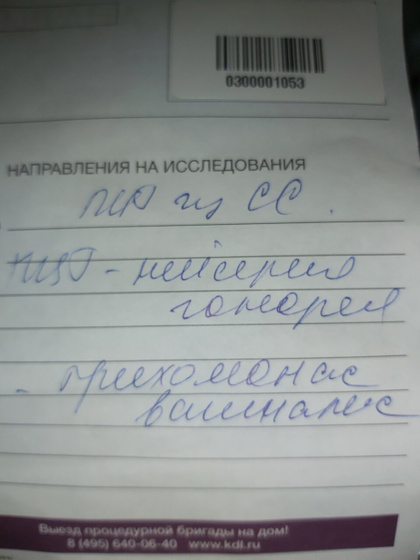 0300001053
НАПРАВЛЕНИЯ НА ИССЛЕДОВАНИЯ
СС.
- нейсерия
гонорея
- трихомонас
вагиналис
Выезд процедурной бригады на дом!
8 (495) 640-06-40 www.kdl.ru